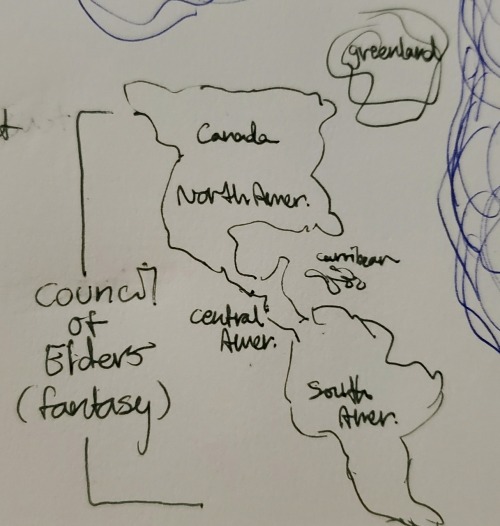 greenland
Canada
North Amer.
carribean
Central
Amer.
Council
of
Elders
(fantasy)
South
Amer.